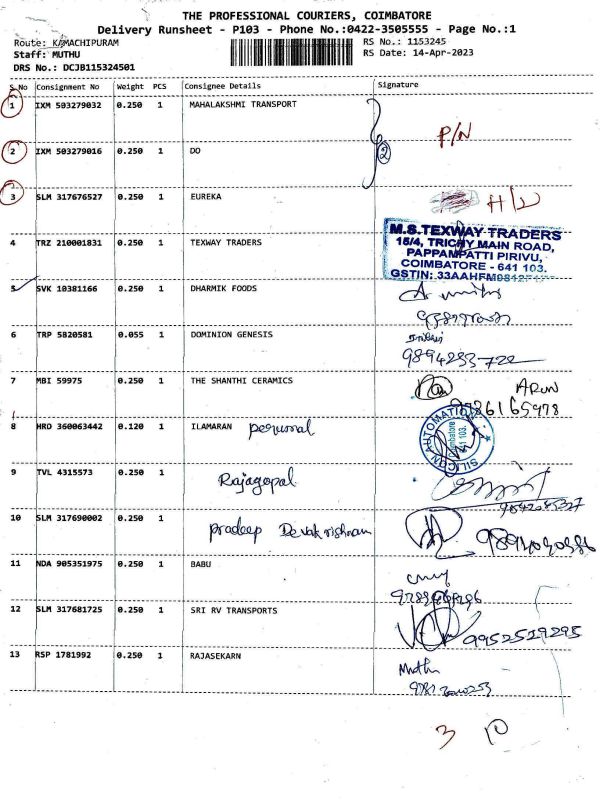 THE PROFESSIONAL COURIERS, COIMBATORE
Delivery Runsheet - P103 - Phone No.:0422-3505555 - Page No.:1
Route: K/MACHIPURAM RS No.: 1153245
Staff: MUTHU RS Date: 14-Apr-2023
DRS No.: DCJB115324501
S.No Consignment No Weight PCS Consignee Details Signature
1 IXM 503279032 0.250 1 MAHALAKSHMI TRANSPORT
P/N
2 IXM 503279016 0.250 1 DO 2
3 SLM 317676527 0.250 1 EUREKA
M.S.TEXWAY TRADERS
15/4, TRICHY MAIN ROAD,
4 TRZ 210001831 0.250 1 TEXWAY TRADERS PAPPAMPATTI PIRIVU,
COIMBATORE - 641 103.
GSTIN:
5 SVK 10381166 0.250 1 DHARMIK FOODS
6 TRP 5820581 0.055 1 DOMINION GENESIS
7 MBI 59975 0.250 1 THE SHANTHI CERAMICS ARUN
8 HRD 360063442 0.120 1 ILAMARAN perumal SILICON AUTOMATION Coimbatore 641 103.
9 TVL 4315573 0.250 1 Rajagopal
10 SLM 317690002 0.250 1 pradeep Devakrishnan
11 NDA 905351975 0.250 1 BABU
12 SLM 317681725 0.250 1 SRI RV TRANSPORTS
9952519295
13 RSP 1781992 0.250 1 RAJASEKARN Muthu
3 10